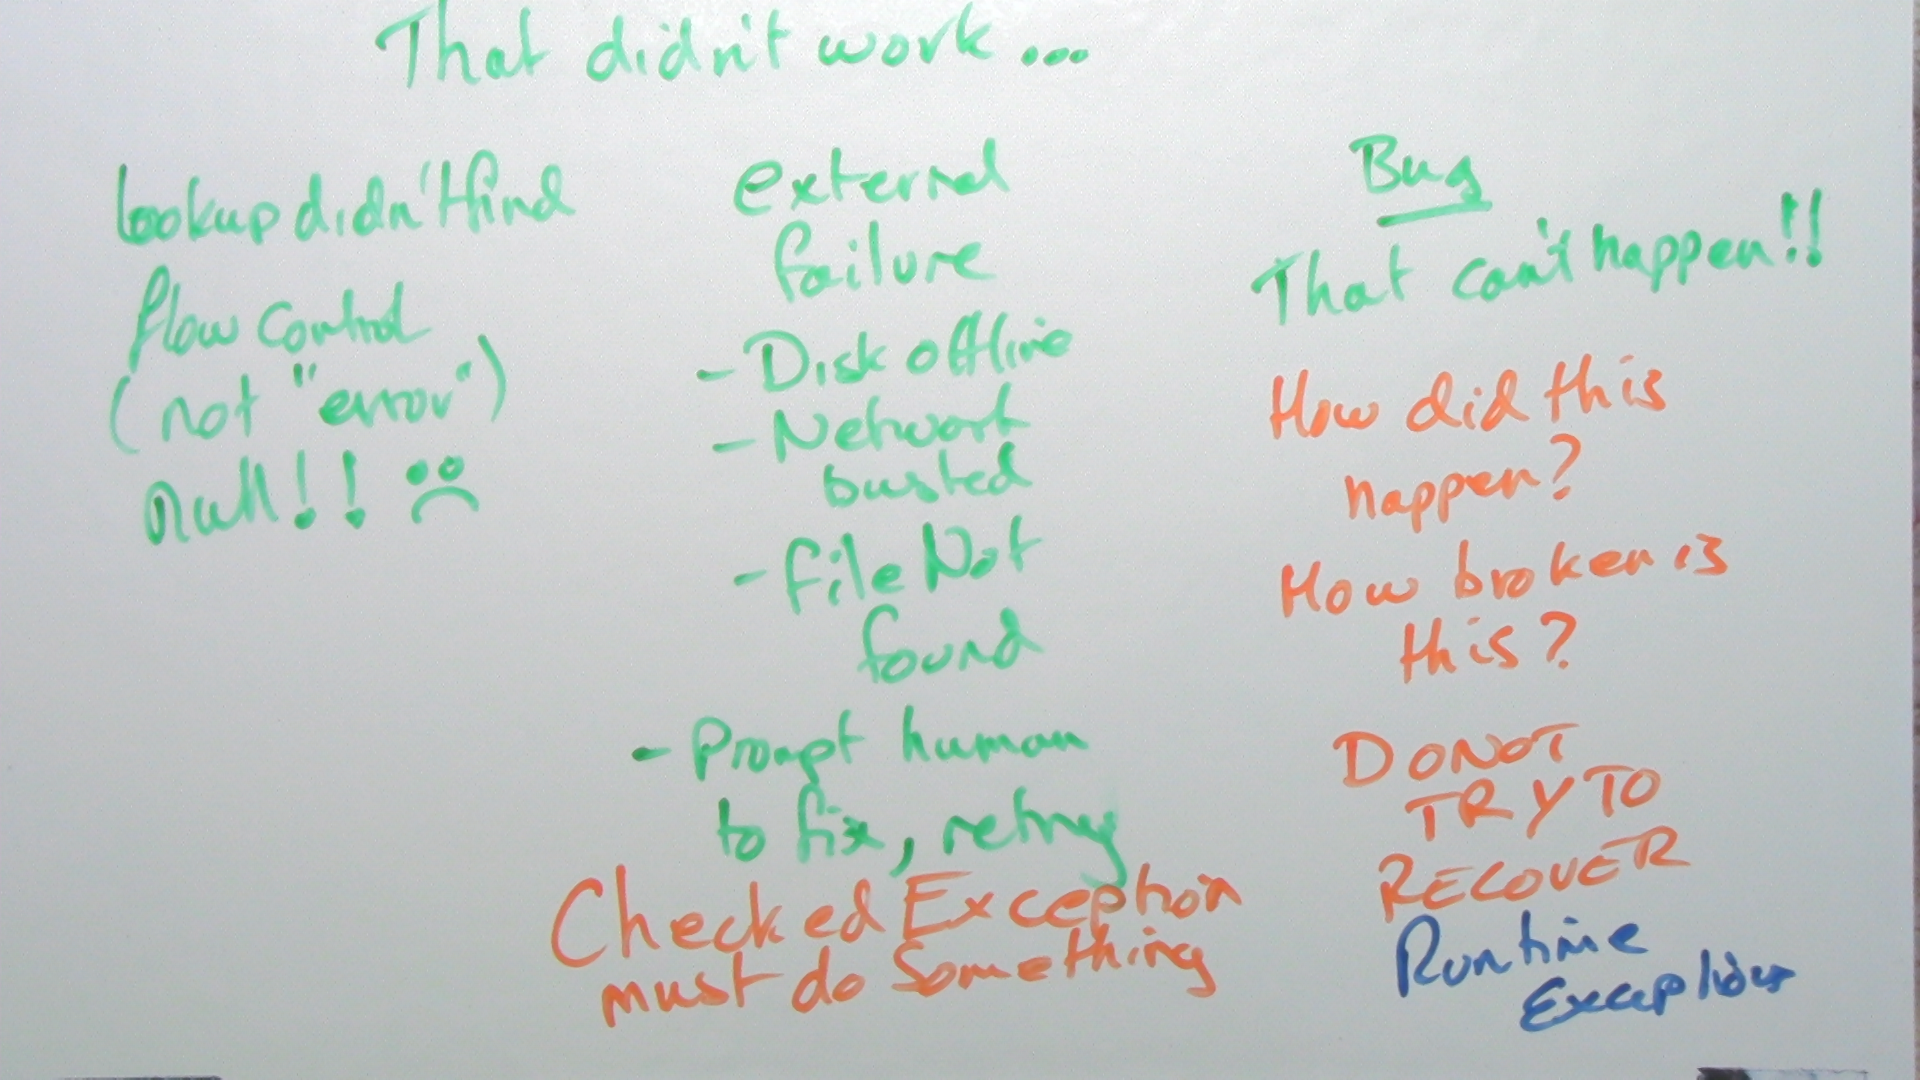 That didn't work...
lookup didn't find
flow control
(not "error")
null!!
external
failure
- Disk offline
- Network
busted
- File Not
found
- Prompt human
to fix, retry
Checked Exception
must do Something
Bug
That can't happen!!
How did this
happen?
How broken is
this?
DO NOT
TRY TO
RECOVER
Runtime
Exception